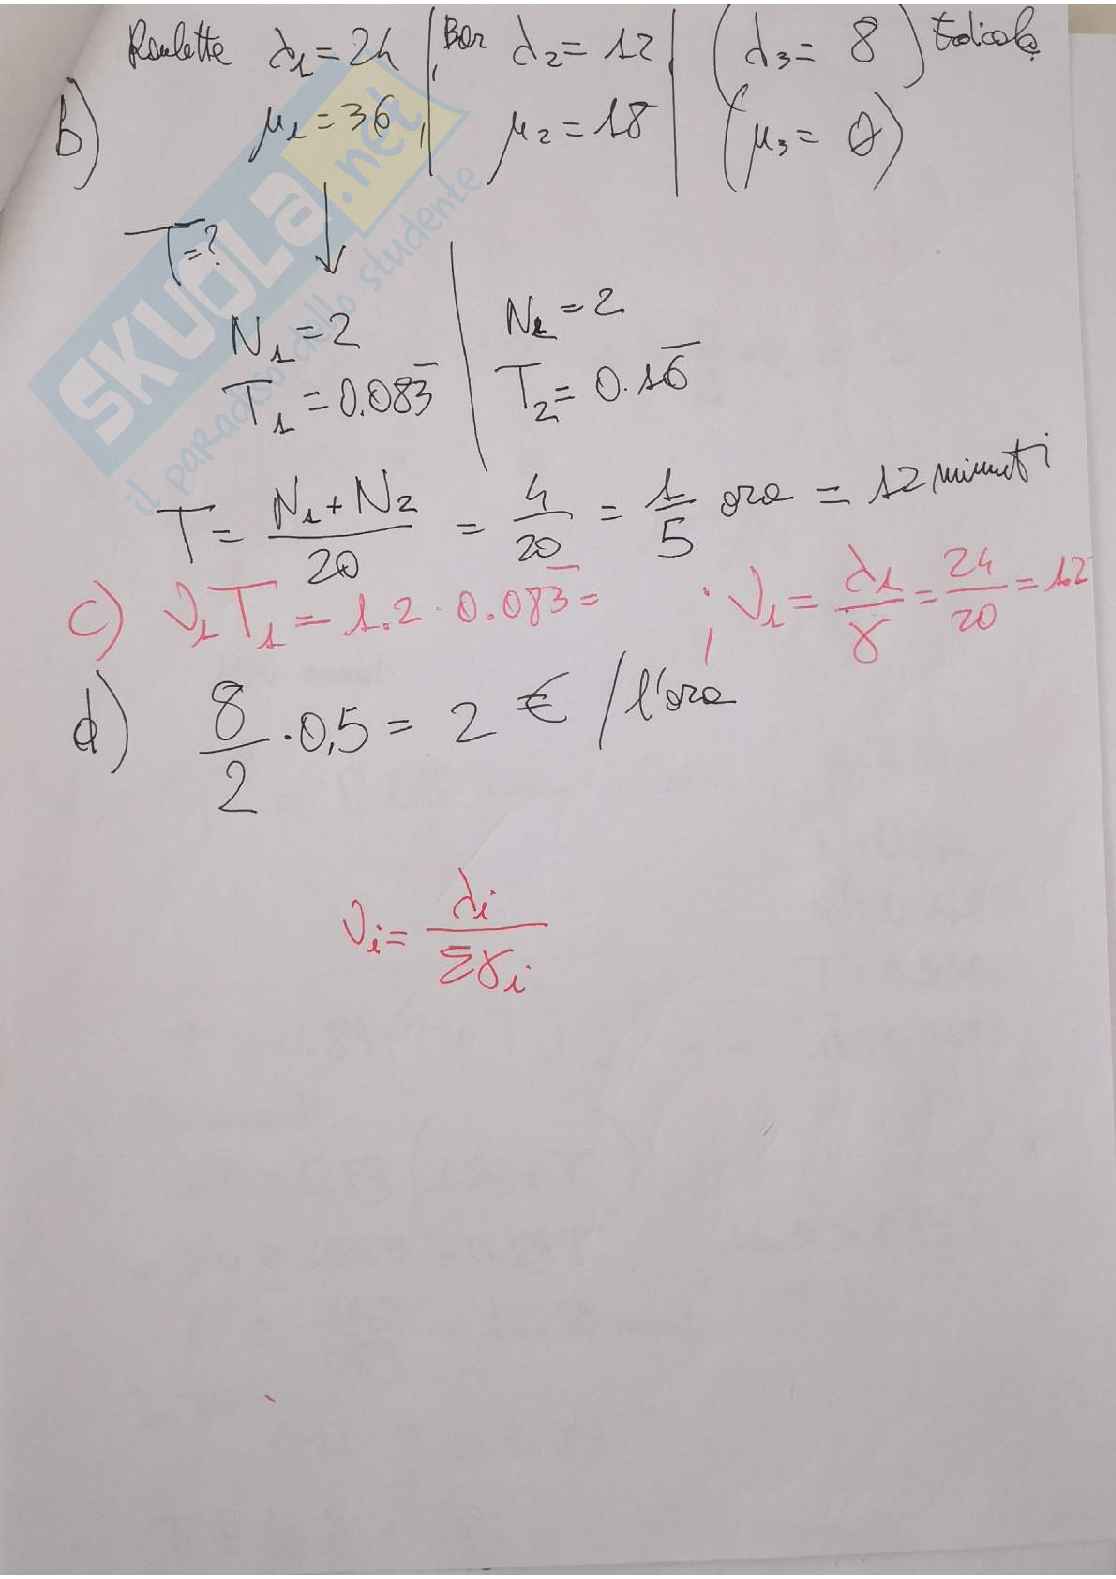 Roulette λ₁ = 24 | Bar λ₂ = 12 | (λ₃ = 8) Edicola
b) μ₁ = 36, | μ₂ = 18 | (μ₃ = 0)
T = ?
N₁ = 2 | N₂ = 2
T₁ = 0.083̅ | T₂ = 0.16̅
T = (N₁ + N₂)/20 = 4/20 = 1/5 ora = 12 minuti
c) ν₁ T₁ = 1.2 · 0.083̅ = ; ν₁ = λ₁/γ = 24/20 = 1.2
d) 8/2 · 0,5 = 2 € / l'ora
νᵢ = λᵢ/Σγᵢ
SKUOLA.net
il paradiso dello studente